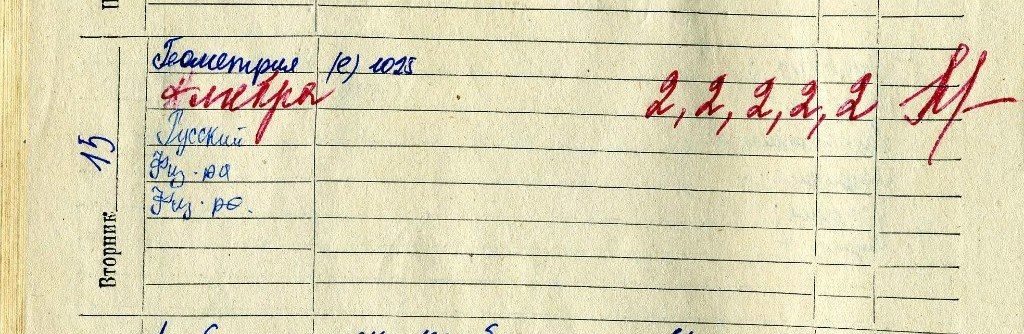 Вторник 15
Геометрия (е) 1025
Алгебра 2, 2, 2, 2, 2
Русский
Физ-ра
Физ-ра.